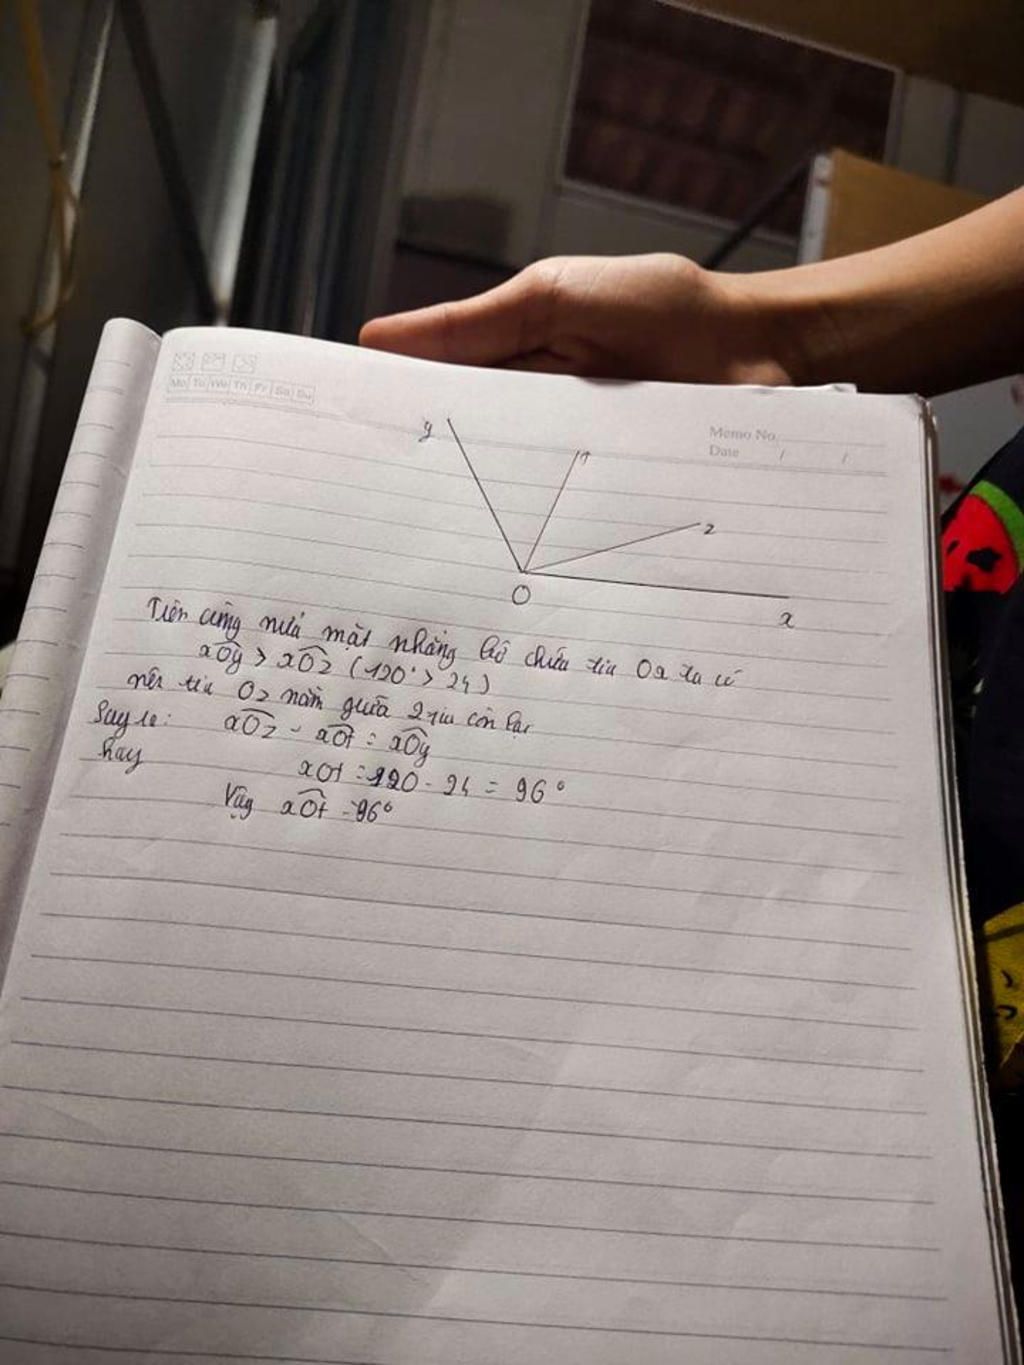 Mo Tu We Th Fr Sa Su
Memo No.
Date / /
y
t
z
O
x
Trên cùng nửa mặt phẳng bờ chứa tia Ox ta có
xOy > xOz (120° > 24)
nên tia Oz nằm giữa 2 tia còn lại
Suy ra: xOz - xOt = xOy
hay xOt = 120 - 24 = 96°
Vậy xOt = 96°